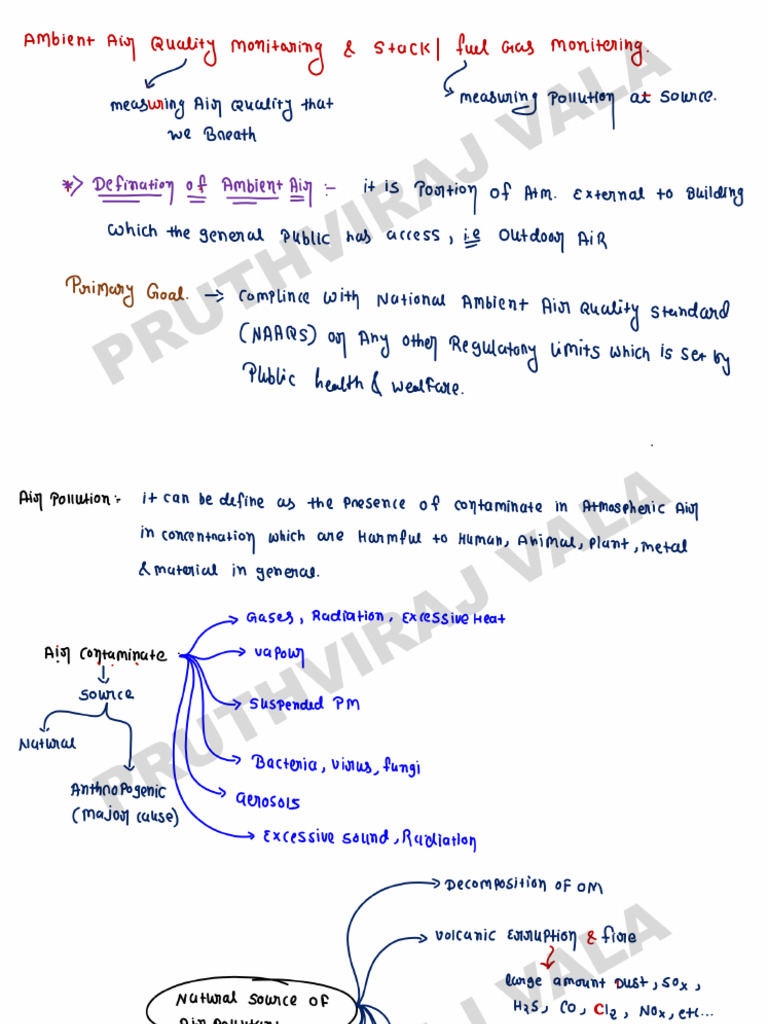 Ambient Air Quality monitoring & Stack| fuel Gas monitering.
measuring Air Quality that
we Breath
measuring Pollution at Source.
*> Defination of Ambient Air :- it is Portion of Atm. External to Building
which the general Public has access, i.e Outdoor Air
Primary Goal. → complince with National Ambient Air Quality Standard
(NAAQS) or Any other Regulatory limits which is set by
Public health & wealfare.
Air Pollution:- it can be define as the presence of contaminate in Atmospheric Air
in concentration which are Harmful to Human, Animal, Plant, metal
& material in general.
Gases, Radiation, Excessive Heat
Air Contaminate
vapour
Source
Suspended PM
Natural
Bacteria, virus, fungi
Anthropogenic
(major cause)
aerosols
Excessive Sound, Radiation
Decomposition of OM
volcanic erruption & fire
large amount Dust, SOx,
H2S, CO, Cl2, NOx, etc...
Natural Source of
Air Pollutant
PRUTHVIRAJ VALA
PRUTHVIRAJ VALA
J VALA